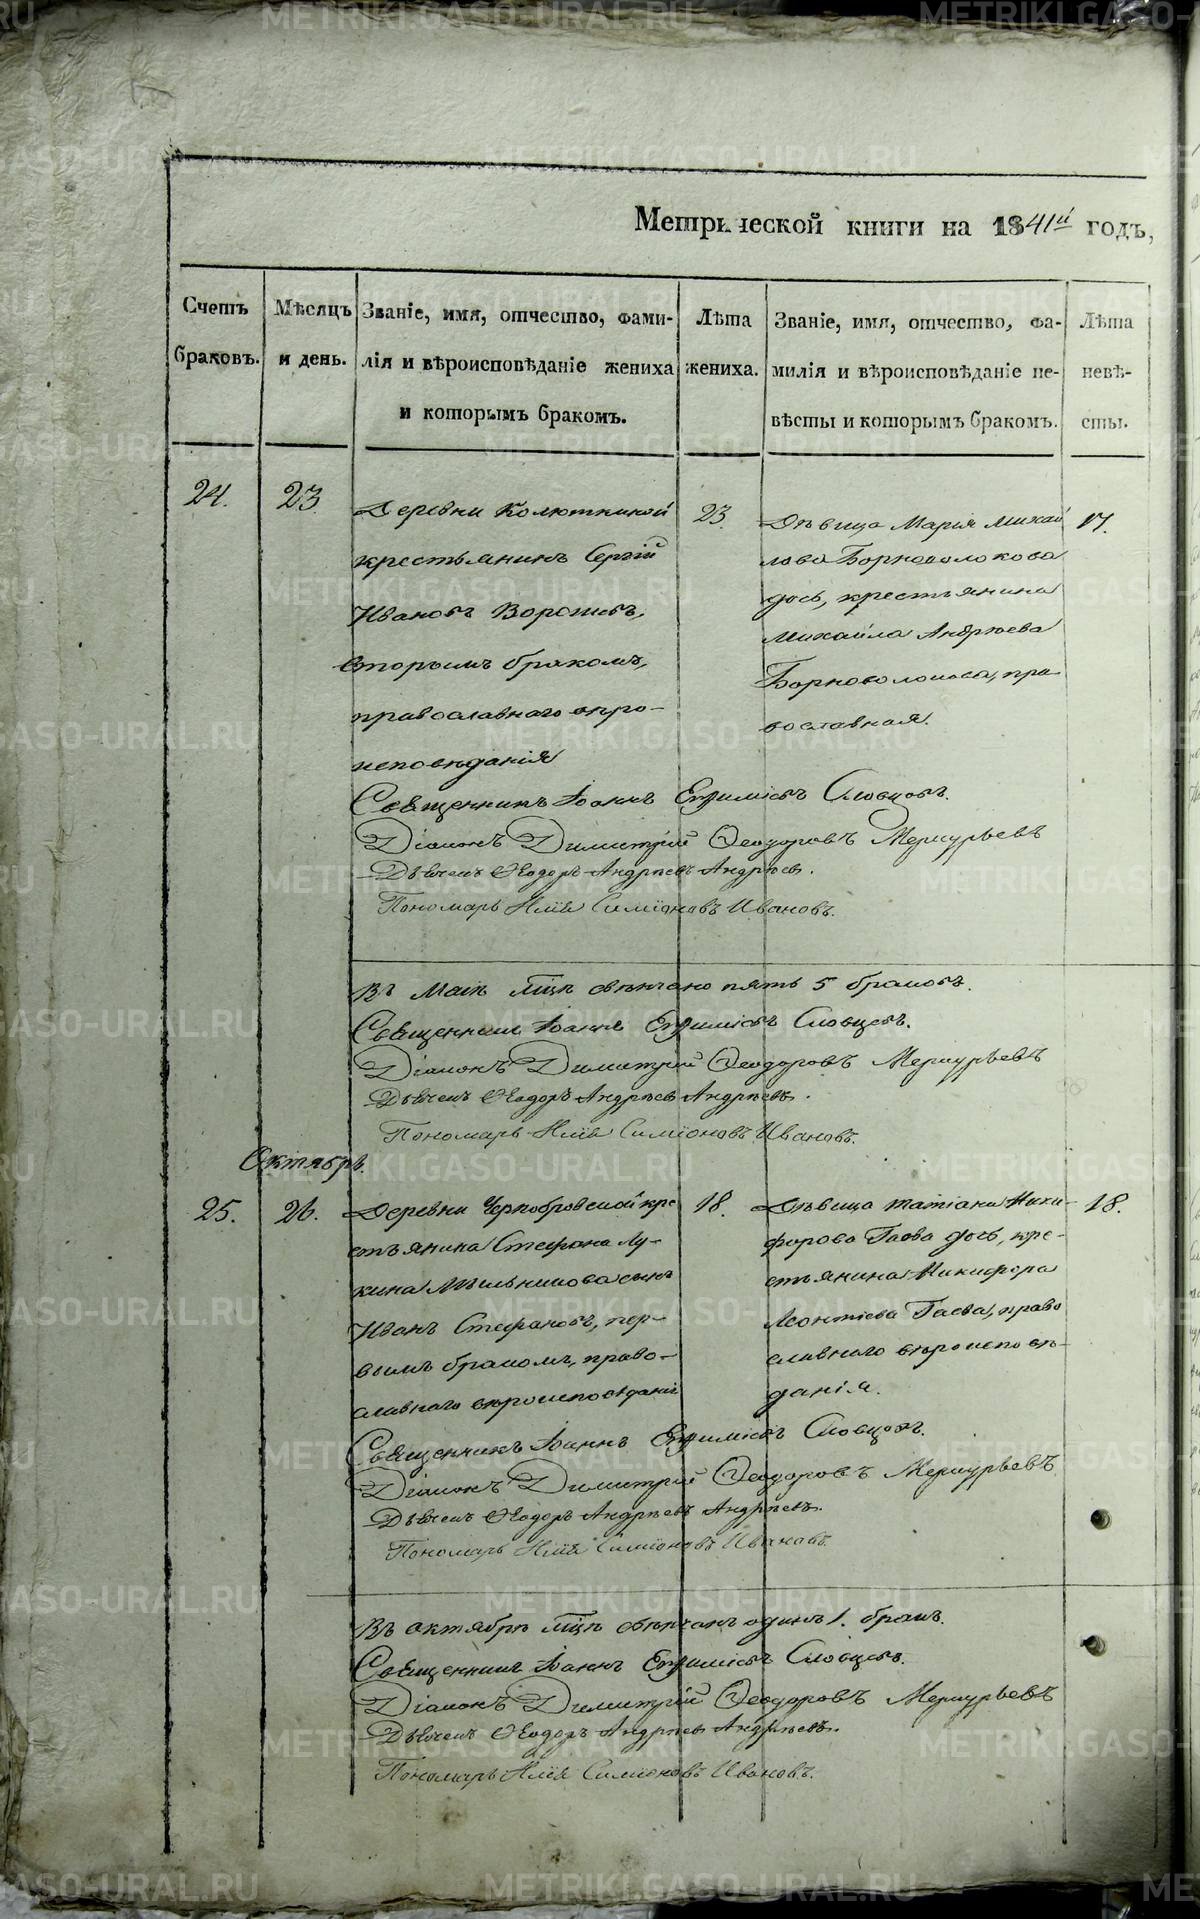 Метрической книги на 1841й годъ,
Счетъ браковъ.
Мѣсяцъ и день.
Званіе, имя, отчество, фами-
лія и вѣроисповѣданіе жениха
и которымъ бракомъ.
Лѣта жениха.
Званіе, имя, отчество, фа-
милія и вѣроисповѣданіе не-
вѣсты и которымъ бракомъ.
Лѣта невѣ-
сты.
24.
23
Деревни Колюткиной
крестьянинъ Сергій
Ивановъ
вторымъ бракомъ,
православнаго
исповѣданія
23.
Дѣвица Марія Михай
лова Борноволокова
дочь, крестьянина
Михайла Андреева
Борноволокова, пра
вославная.
17.
Священникъ Іоаннъ Евфиміевъ Словцовъ.
Діаконъ Димитрій Ѳеодоровъ Меркурьевъ
Дьячекъ Ѳеодоръ Андреевъ Андреевъ.
Пономарь Илія Симіоновъ Ивановъ.
Въ Маіѣ мцѣ вѣнчано пять 5 браковъ.
Священникъ Іоаннъ Евфиміевъ Словцовъ.
Діаконъ Димитрій Ѳеодоровъ Меркурьевъ
Дьячекъ Ѳеодоръ Андреевъ Андреевъ.
Пономарь Илія Симіоновъ Ивановъ.
Октябрь.
25.
26.
Деревни Чернобровской кре
стьянина Стефана Лу-
кина Мыльникова сынъ
Иванъ Стефановъ, пер-
вымъ бракомъ, право-
славнаго вѣроисповѣданія
18.
Дѣвица Татіана Ники-
форова Гаева дочь, кре-
стьянина Никифора
Леонтіева Гаева, право
славнаго вѣроисповѣ-
данія.
18.
Священникъ Іоаннъ Евфиміевъ Словцовъ.
Діаконъ Димитрій Ѳеодоровъ Меркурьевъ
Дьячекъ Ѳеодоръ Андреевъ Андреевъ.
Пономарь Илія Симіоновъ Ивановъ.
Въ октябрѣ мцѣ вѣнчанъ одинъ 1. бракъ.
Священникъ Іоаннъ Евфиміевъ Словцовъ.
Діаконъ Димитрій Ѳеодоровъ Меркурьевъ
Дьячекъ Ѳеодоръ Андреевъ Андреевъ.
Пономарь Илія Симіоновъ Ивановъ.
METRIKI.GASO-URAL.RU